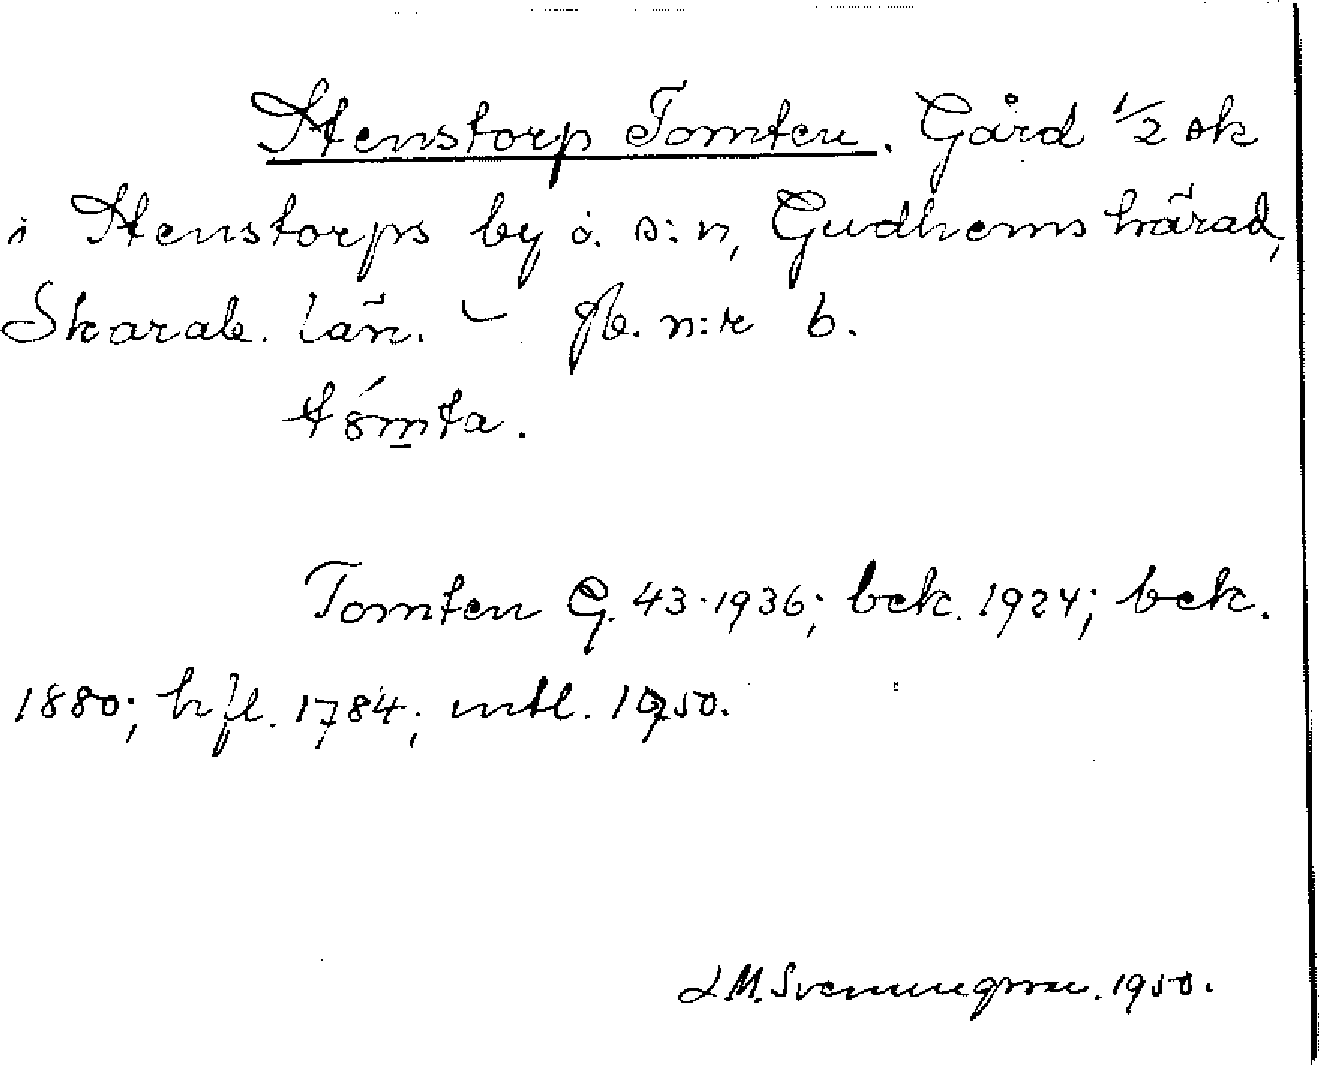 Stenstorp Tomten. Gård 1/2 sk
i Stenstorps by o. s:n, Gudhems härad,
Skarab. län. – Jb. n:r 6.
tómta.
Tomten G. 43 1936; bek. 1924; bek.
1880; hfl. 1784; mtl. 1950.
1950.